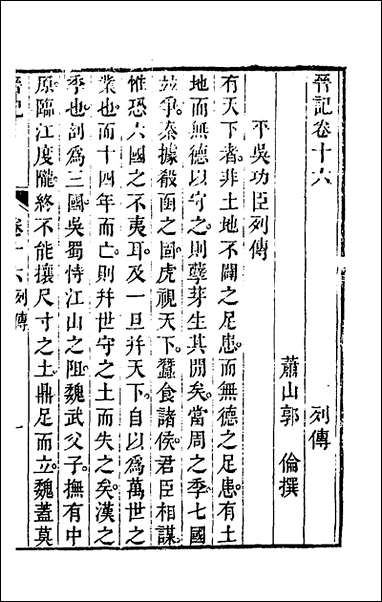 晉記卷十六
列傳
蕭山郭 倫撰
平吳功臣列傳
有天下者非土地不闢之足患而無德之足患有土
地而無德以守之則孽芽生其閒矣當周之季七國
竝爭秦據殽函之固虎視天下蠶食諸侯君臣相謀
惟恐六國之不夷耳及一旦幷天下自以爲萬世之
業也而十四年而亡則幷世守之土而失之矣漢之
季也剖爲三國吳蜀恃江山之阻魏武父子撫有中
原臨江度隴終不能攘尺寸之土鼎足而立魏蓋莫
晉記
卷十六列傳
一